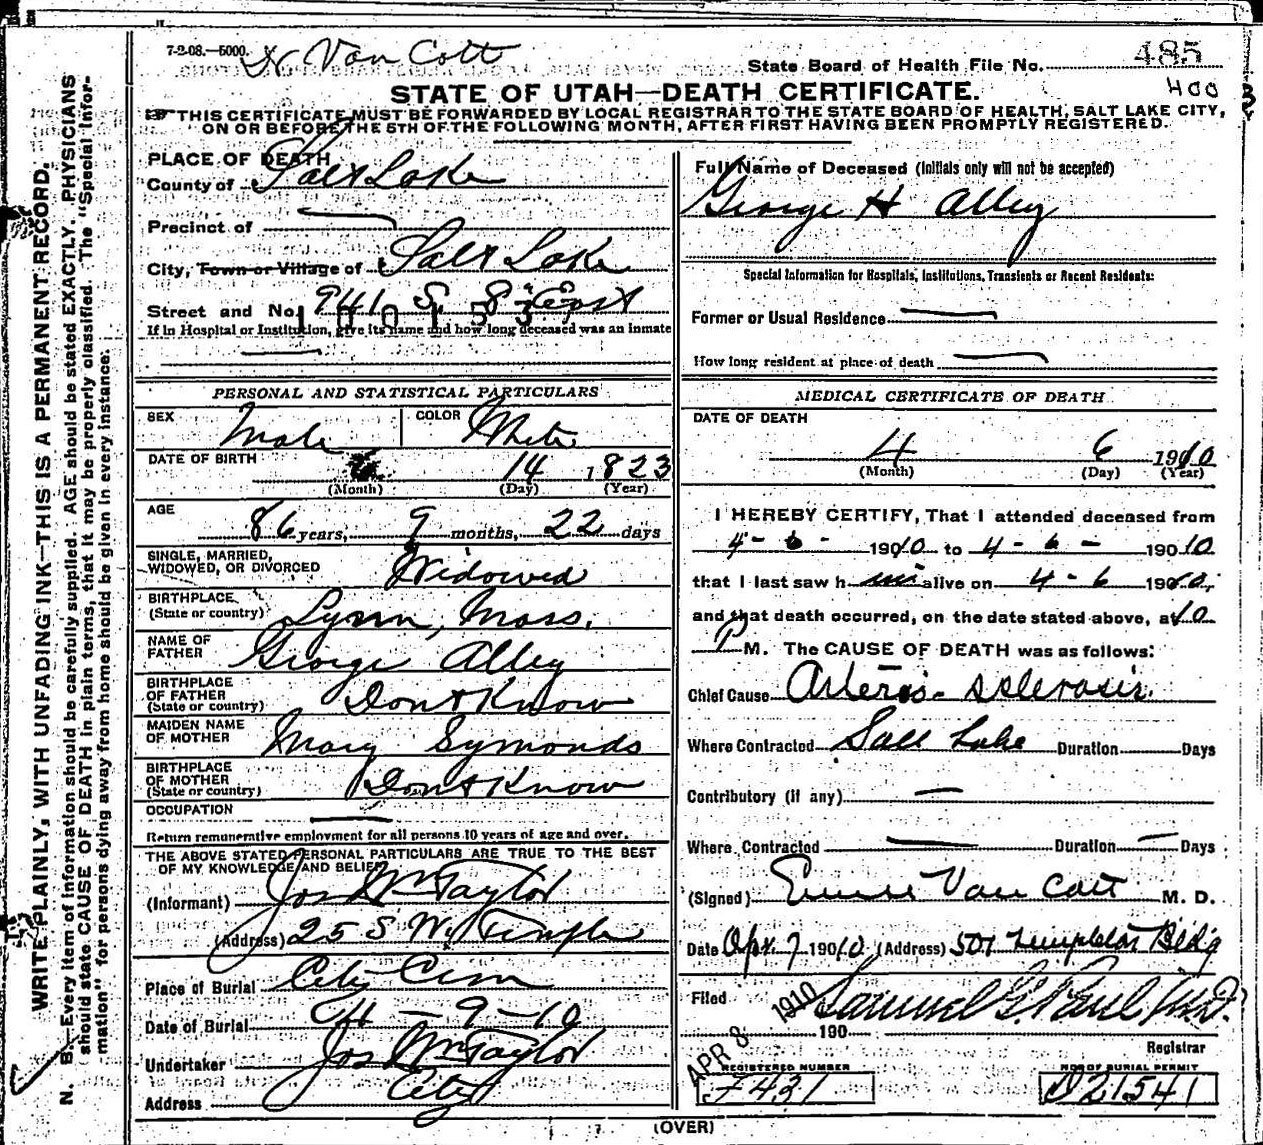 7-2-08.—5000.
Van Cott
State Board of Health File No. 485
400
STATE OF UTAH—DEATH CERTIFICATE.
THIS CERTIFICATE MUST BE FORWARDED BY LOCAL REGISTRAR TO THE STATE BOARD OF HEALTH, SALT LAKE CITY,
ON OR BEFORE THE 5TH OF THE FOLLOWING MONTH, AFTER FIRST HAVING BEEN PROMPTLY REGISTERED.
WRITE PLAINLY, WITH UNFADING INK—THIS IS A PERMANENT RECORD.
N. B.—Every item of information should be carefully supplied. AGE should be stated EXACTLY. PHYSICIANS
should state CAUSE OF DEATH in plain terms, that it may be properly classified. The "Special Infor-
mation" for persons dying away from home should be given in every instance.
PLACE OF DEATH
County of Salt Lake
Precinct of
City, Town or Village of Salt Lake
Street and No. 941 S. 8" East
1001537
If in Hospital or Institution, give its name and how long deceased was an inmate
PERSONAL AND STATISTICAL PARTICULARS
SEX Male COLOR White
DATE OF BIRTH 14 1823
(Month) (Day) (Year)
AGE 86 years, 9 months, 22 days
SINGLE, MARRIED,
WIDOWED, OR DIVORCED Widowed
BIRTHPLACE
(State or country) Lynn, Mass.
NAME OF
FATHER George Alley
BIRTHPLACE
OF FATHER
(State or country) Dont Know
MAIDEN NAME
OF MOTHER Mary Symonds
BIRTHPLACE
OF MOTHER
(State or country) Dont Know
OCCUPATION
Return remunerative employment for all persons 10 years of age and over.
THE ABOVE STATED PERSONAL PARTICULARS ARE TRUE TO THE BEST
OF MY KNOWLEDGE AND BELIEF
(Informant) Jos Wm Taylor
(Address) 25 S W. Temple
Place of Burial City Cem
Date of Burial 4 - 9 - 10
Undertaker Jos Wm Taylor
Address City
Full Name of Deceased (Initials only will not be accepted)
George H Alley
Special Information for Hospitals, Institutions, Transients or Recent Residents:
Former or Usual Residence
How long resident at place of death
MEDICAL CERTIFICATE OF DEATH
DATE OF DEATH
4 6 1910
(Month) (Day) (Year)
I HEREBY CERTIFY, That I attended deceased from
4 - 6 - 1910 to 4 - 6 - 1910
that I last saw him alive on 4 - 6 1910,
and that death occurred, on the date stated above, at 10
P M. The CAUSE OF DEATH was as follows:
Chief Cause Arterio-sclerosis.
Where Contracted Salt Lake Duration Days
Contributory (if any)
Where Contracted Duration Days
(Signed) Van Cott M. D.
Date Apr 7 1910 (Address) 501 Templeton Bldg
Filed APR 8 1910 190 Samuel G. Paul M.D.
Registrar
REGISTERED NUMBER
F431
NO. OF BURIAL PERMIT
D21541
(OVER)